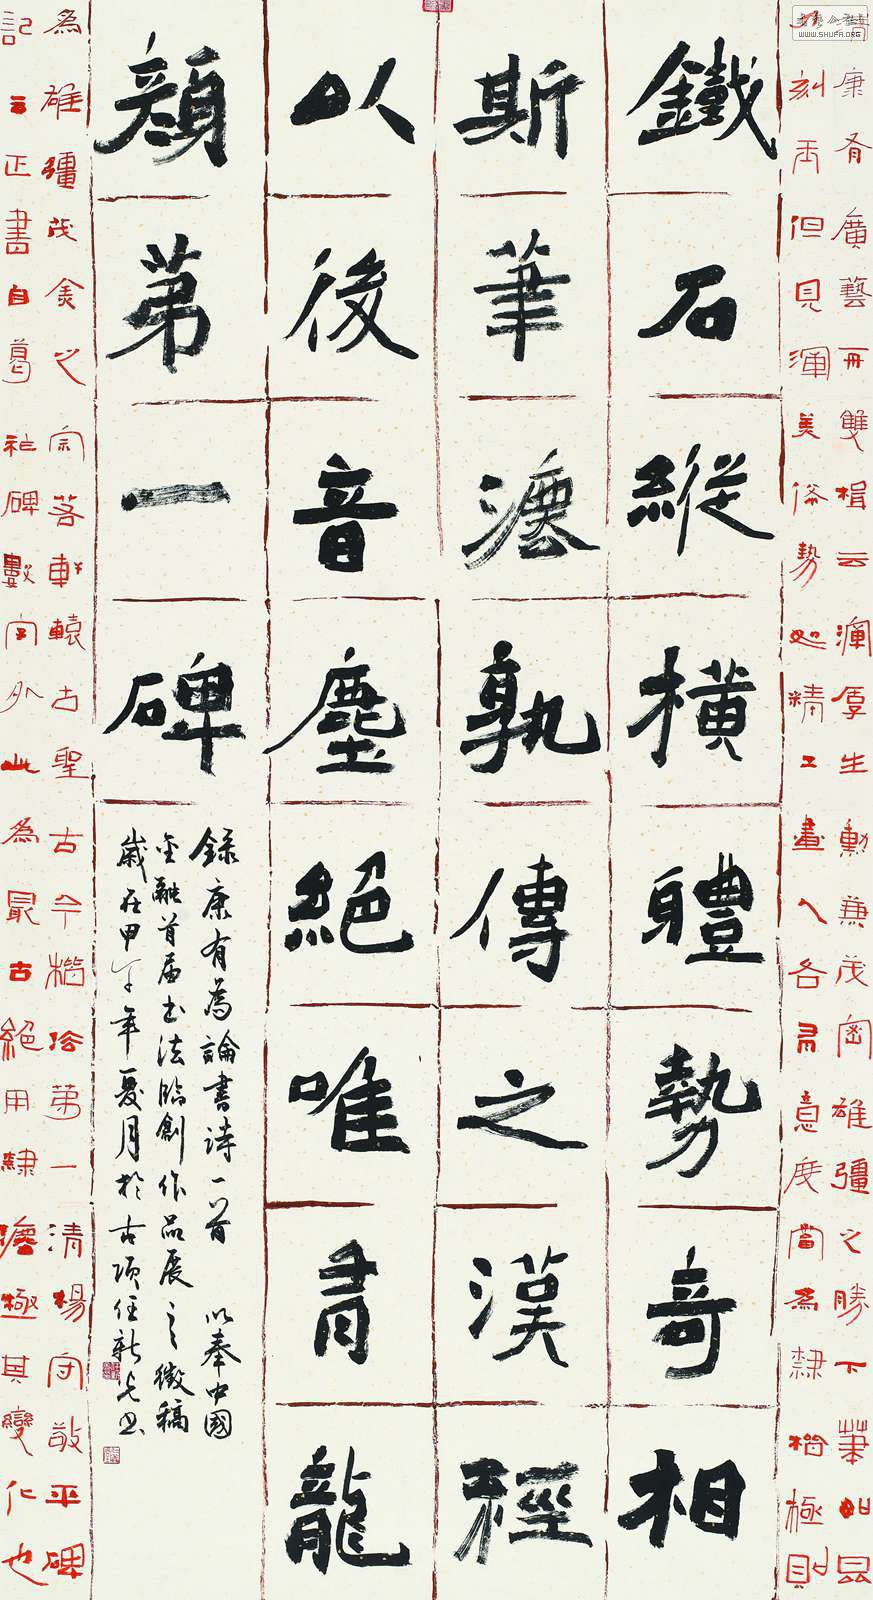 康有廣藝舟雙楫云渾厚生動兼茂密雄彊之勝下筆如昆
刻玉但見渾美俗勢如精工畫人各有意度當為隸楷極則
鐵石縱橫體勢奇相
斯筆灋孰傳之漢經
以後音塵絕唯有龍
顏第一碑
錄康有為論書詩一首 以奉中國
金融首屆书法臨創作品展之徵稿
歲在甲午年夏月於古項任新书
為雄彊茂美之宗若軒轅古聖古今楷法第一清楊守敬平碑
記云正書自葛祚碑數字外此為最古絕用隸灋極其變化也
WWW.SHUFA.ORG